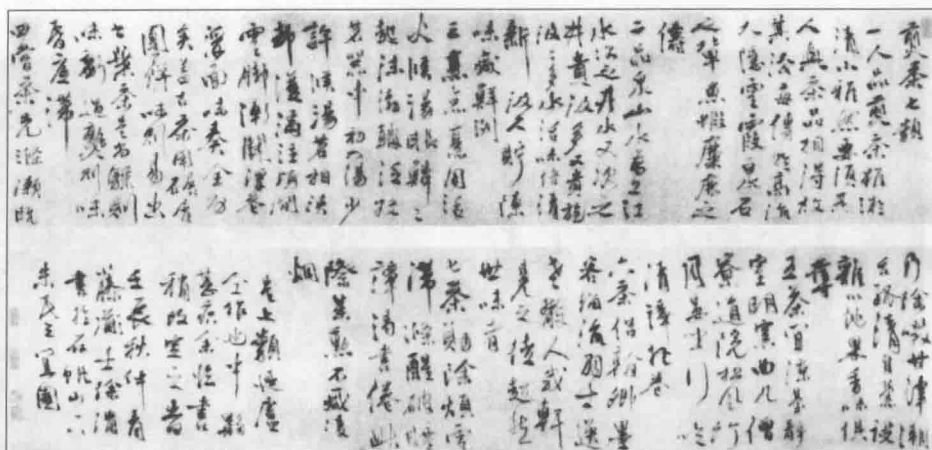 煎茶七類
一人品煎茶雖微
清小雅然要須其
人與茶品相得故
其法每傳於高流
大隱雲霞泉石
之輩魚蝦麋鹿之
儔
二品泉山水為上江
水次之井水又次之
井貴汲多又貴旋
汲汲多水活味倍清
新汲久貯陳
味減鮮冽
三烹點烹用活
火候湯眼鱗々
起沫浡鼓泛投
茗器中初入湯少
許候湯茗相浹
卻復滿注頃間
雲腳漸開浮花
浮面味奏全功
矣蓋古茶用碾屑
團餅味則易出
葉茶是尚驟則
味虧過熟則味
昏底滯
四嘗茶先滌漱既
乃徐啜甘津潮
舌孤清自縈設
雜以他果香味俱
奪
五茶宜涼臺靜
室明窗曲几僧
寮道院松風竹
月晏坐行吟
清譚把卷
六茶侶翰卿墨
客緇流羽士逸
老散人或軒
冕之徒超然
世味者
七茶勳除煩雪
滯滌酲破睡
譚渴書倦此
際策勳不減凌
煙
是七類乃盧
仝作也中夥
甚疾余臨書
稍改定之時
壬辰秋仲青
藤道士徐渭
書於石帆山下
朱氏三宜園